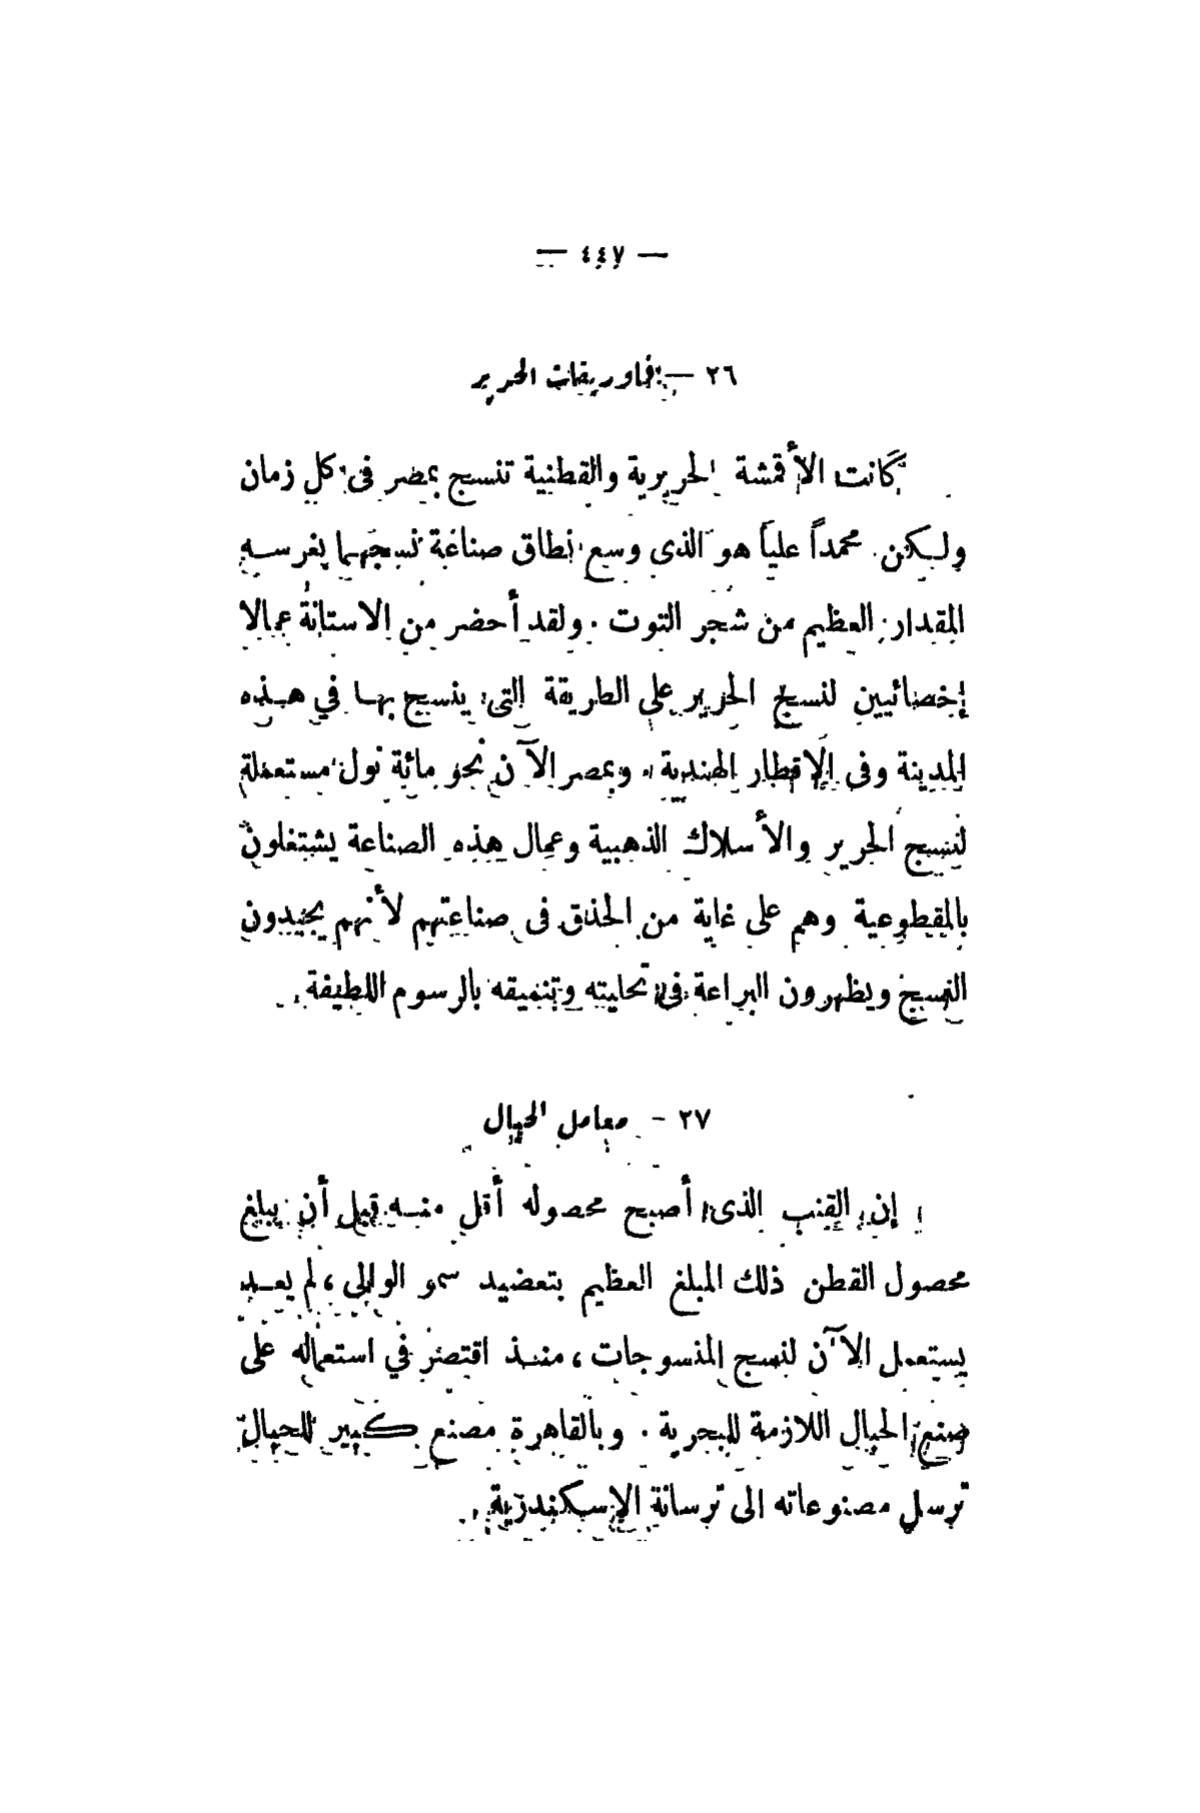 — ٤٤٧ —
٢٦ — فاوريقات الحرير
كانت الأقمشة الحريرية والقطنية تنسج بمصر فى كل زمان
ولكن محمداً علياً هو الذى وسع نطاق صناعة نسجهما بغرسه
المقدار العظيم من شجر التوت . ولقد أحضر من الاستانة عمالا
إخصائيين لنسج الحرير على الطريقة التى ينسج بها في هذه
المدينة وفى الاقطار الهندية . وبمصر الآن نحو مائة نول مستعملة
لنسج الحرير والأسلاك الذهبية وعمال هذه الصناعة يشتغلون
بالمقطوعية وهم على غاية من الحذق فى صناعتهم لأنهم يجيدون
النسج ويظهرون البراعة فى تحليته وتنميقه بالرسوم اللطيفة .
٢٧ - معامل الحبال
إن القنب الذى أصبح محصوله أقل منه قبل أن يبلغ
محصول القطن ذلك المبلغ العظيم بتعضيد سمو الوالى ، لم يعد
يستعمل الآن لنسج المنسوجات ، منذ اقتصر في استعماله على
صنع الحبال اللازمة للبحرية . وبالقاهرة مصنع كبير للحبال
ترسل مصنوعاته الى ترسانة الإسكندرية .